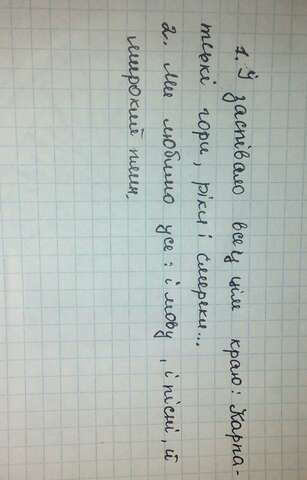 1. Й заспівало все у ціле краю: Карпа-
тські гори, ріки і смереки...
2. Ми любимо усе: і мову, і пісні, й
широкий плин.